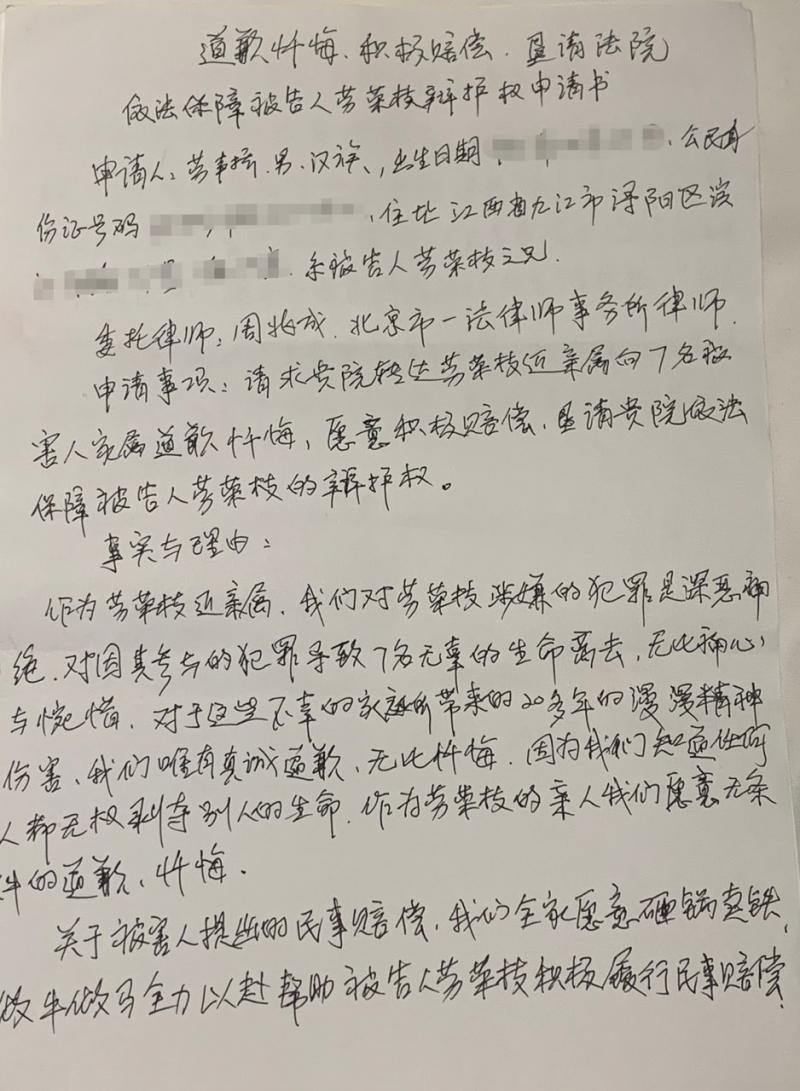 道歉忏悔、积极赔偿、恳请法院
依法保障被告人劳荣枝辩护权申请书
申请人：劳声桥、男、汉族、，出生日期、公民身
份证号码、住址江西省九江市浔阳区滨
、系被告人劳荣枝之兄.
委托律师：周兆成、北京市一法律师事务所律师.
申请事项：请求贵院转达劳荣枝近亲属向7名被
害人家属道歉忏悔，愿意积极赔偿，恳请贵院依法
保障被告人劳荣枝的辩护权。
事实与理由：
作为劳荣枝近亲属，我们对劳荣枝涉嫌的犯罪是深恶痛
绝，对因其参与的犯罪导致7名无辜的生命离去，无比痛心
与惋惜，对于这些不幸的家庭所带来的20多年的漫漫精神
伤害、我们唯有真诚道歉、无比忏悔，因为我们知道任何
人都无权剥夺别人的生命，作为劳荣枝的亲人我们愿意无条
件的道歉、忏悔.
关于被害人提出的民事赔偿，我们全家愿意砸锅卖铁、
做牛做马全力以赴帮助被告人劳荣枝积极履行民事赔偿